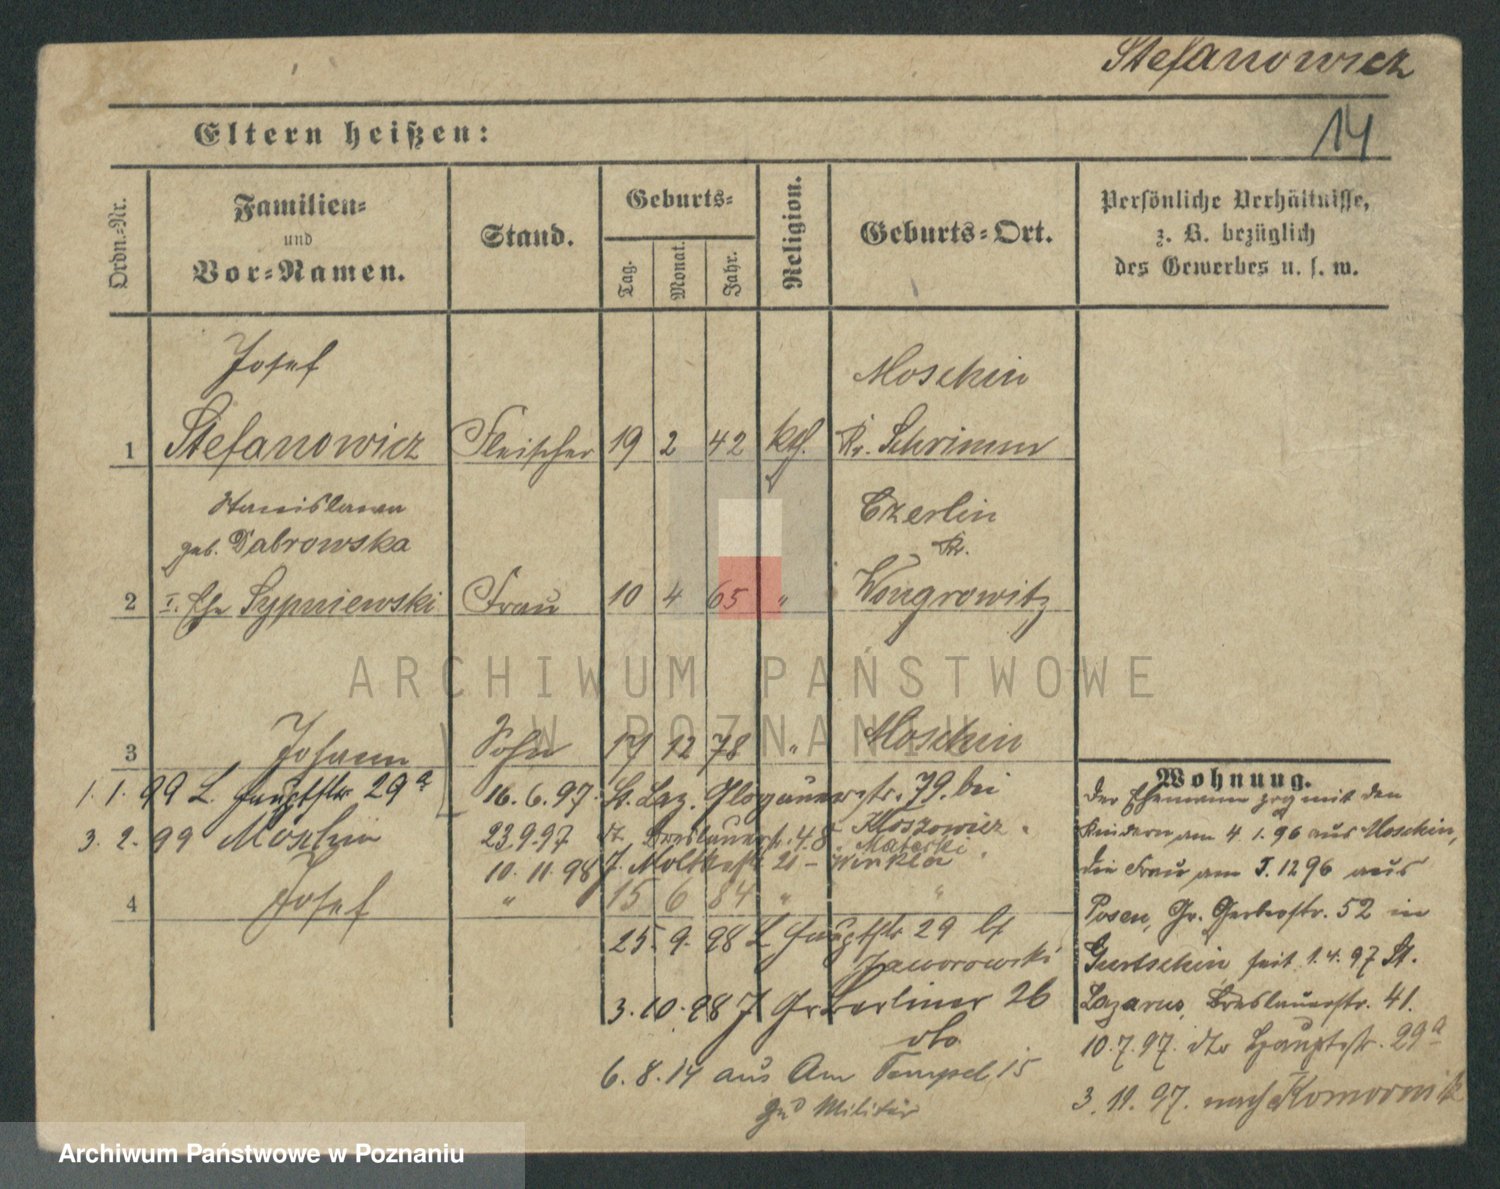 Stefanowicz
14
Eltern heißen:
Ordn.-Nr.
Familien-
und
Vor-Namen.
Stand.
Geburts-
Tag.
Monat.
Jahr.
Religion.
Geburts-Ort.
Persönliche Verhältnisse,
z. B. bezüglich
des Gewerbes u. s. w.
Josef
Moschin
1 Stefanowicz Fleischer 19 2 42 kth. Kr. Schrimm
Stanislawa
geb. Dabrowska
Czerlin
Kr.
2 I. Ehe Sypniewski Frau 10 4 65 " Wongrowitz
3 Johann Sohn 17 12 78 " Moschin
1. 1. 99 L. Hauptstr 29a
16. 6. 97. St. Laz. Glogauerstr. 79. bei
3. 2. 99 Moschin
23.9.97 dt. Breslauerstr. 48 Kloszowicz
Materski
10. 11. 98 J. Moltkestr. 21 - Winkler
4 Josef " 15 6 84 " "
25. 9. 98 L Hauptstr 29 bei
Jaworowski
3. 10. 98 J Gr Berliner 26
dto.
6. 8. 14 aus Am Tempel 15
zum Militär
Wohnung.
Der Ehemann zog mit den
Kindern am 4. 1. 96 aus Moschin,
die Frau am 5. 12 96 aus
Posen, Gr. Gerberstr. 52 in
Gurtschin seit 1. 4. 97 St.
Lazarus, Breslauerstr. 41.
10. 7. 97. dto Hauptstr. 29a
3. 11. 97. nach Komornik
ARCHIWUM PAŃSTWOWE
W POZNANIU
Archiwum Państwowe w Poznaniu